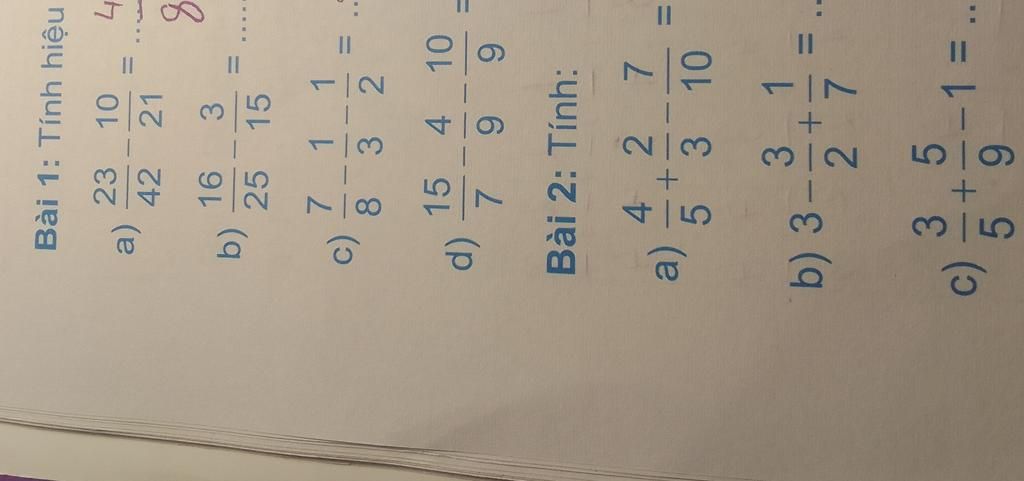 Bài 1: Tính hiệu
a) 23/42 - 10/21 = .....
b) 16/25 - 3/15 = .....
c) 7/8 - 1/3 - 1/2 = ..
d) 15/7 - 4/9 - 10/9 =
Bài 2: Tính:
a) 4/5 + 2/3 - 7/10 =
b) 3 - 3/2 + 1/7 = ..
c) 3/5 + 5/9 - 1 = ..